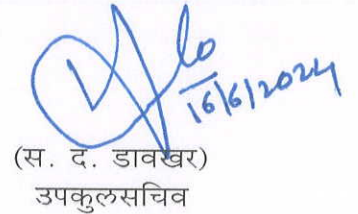 16/6/2024
(स. द. डावखर)
उपकुलसचिव